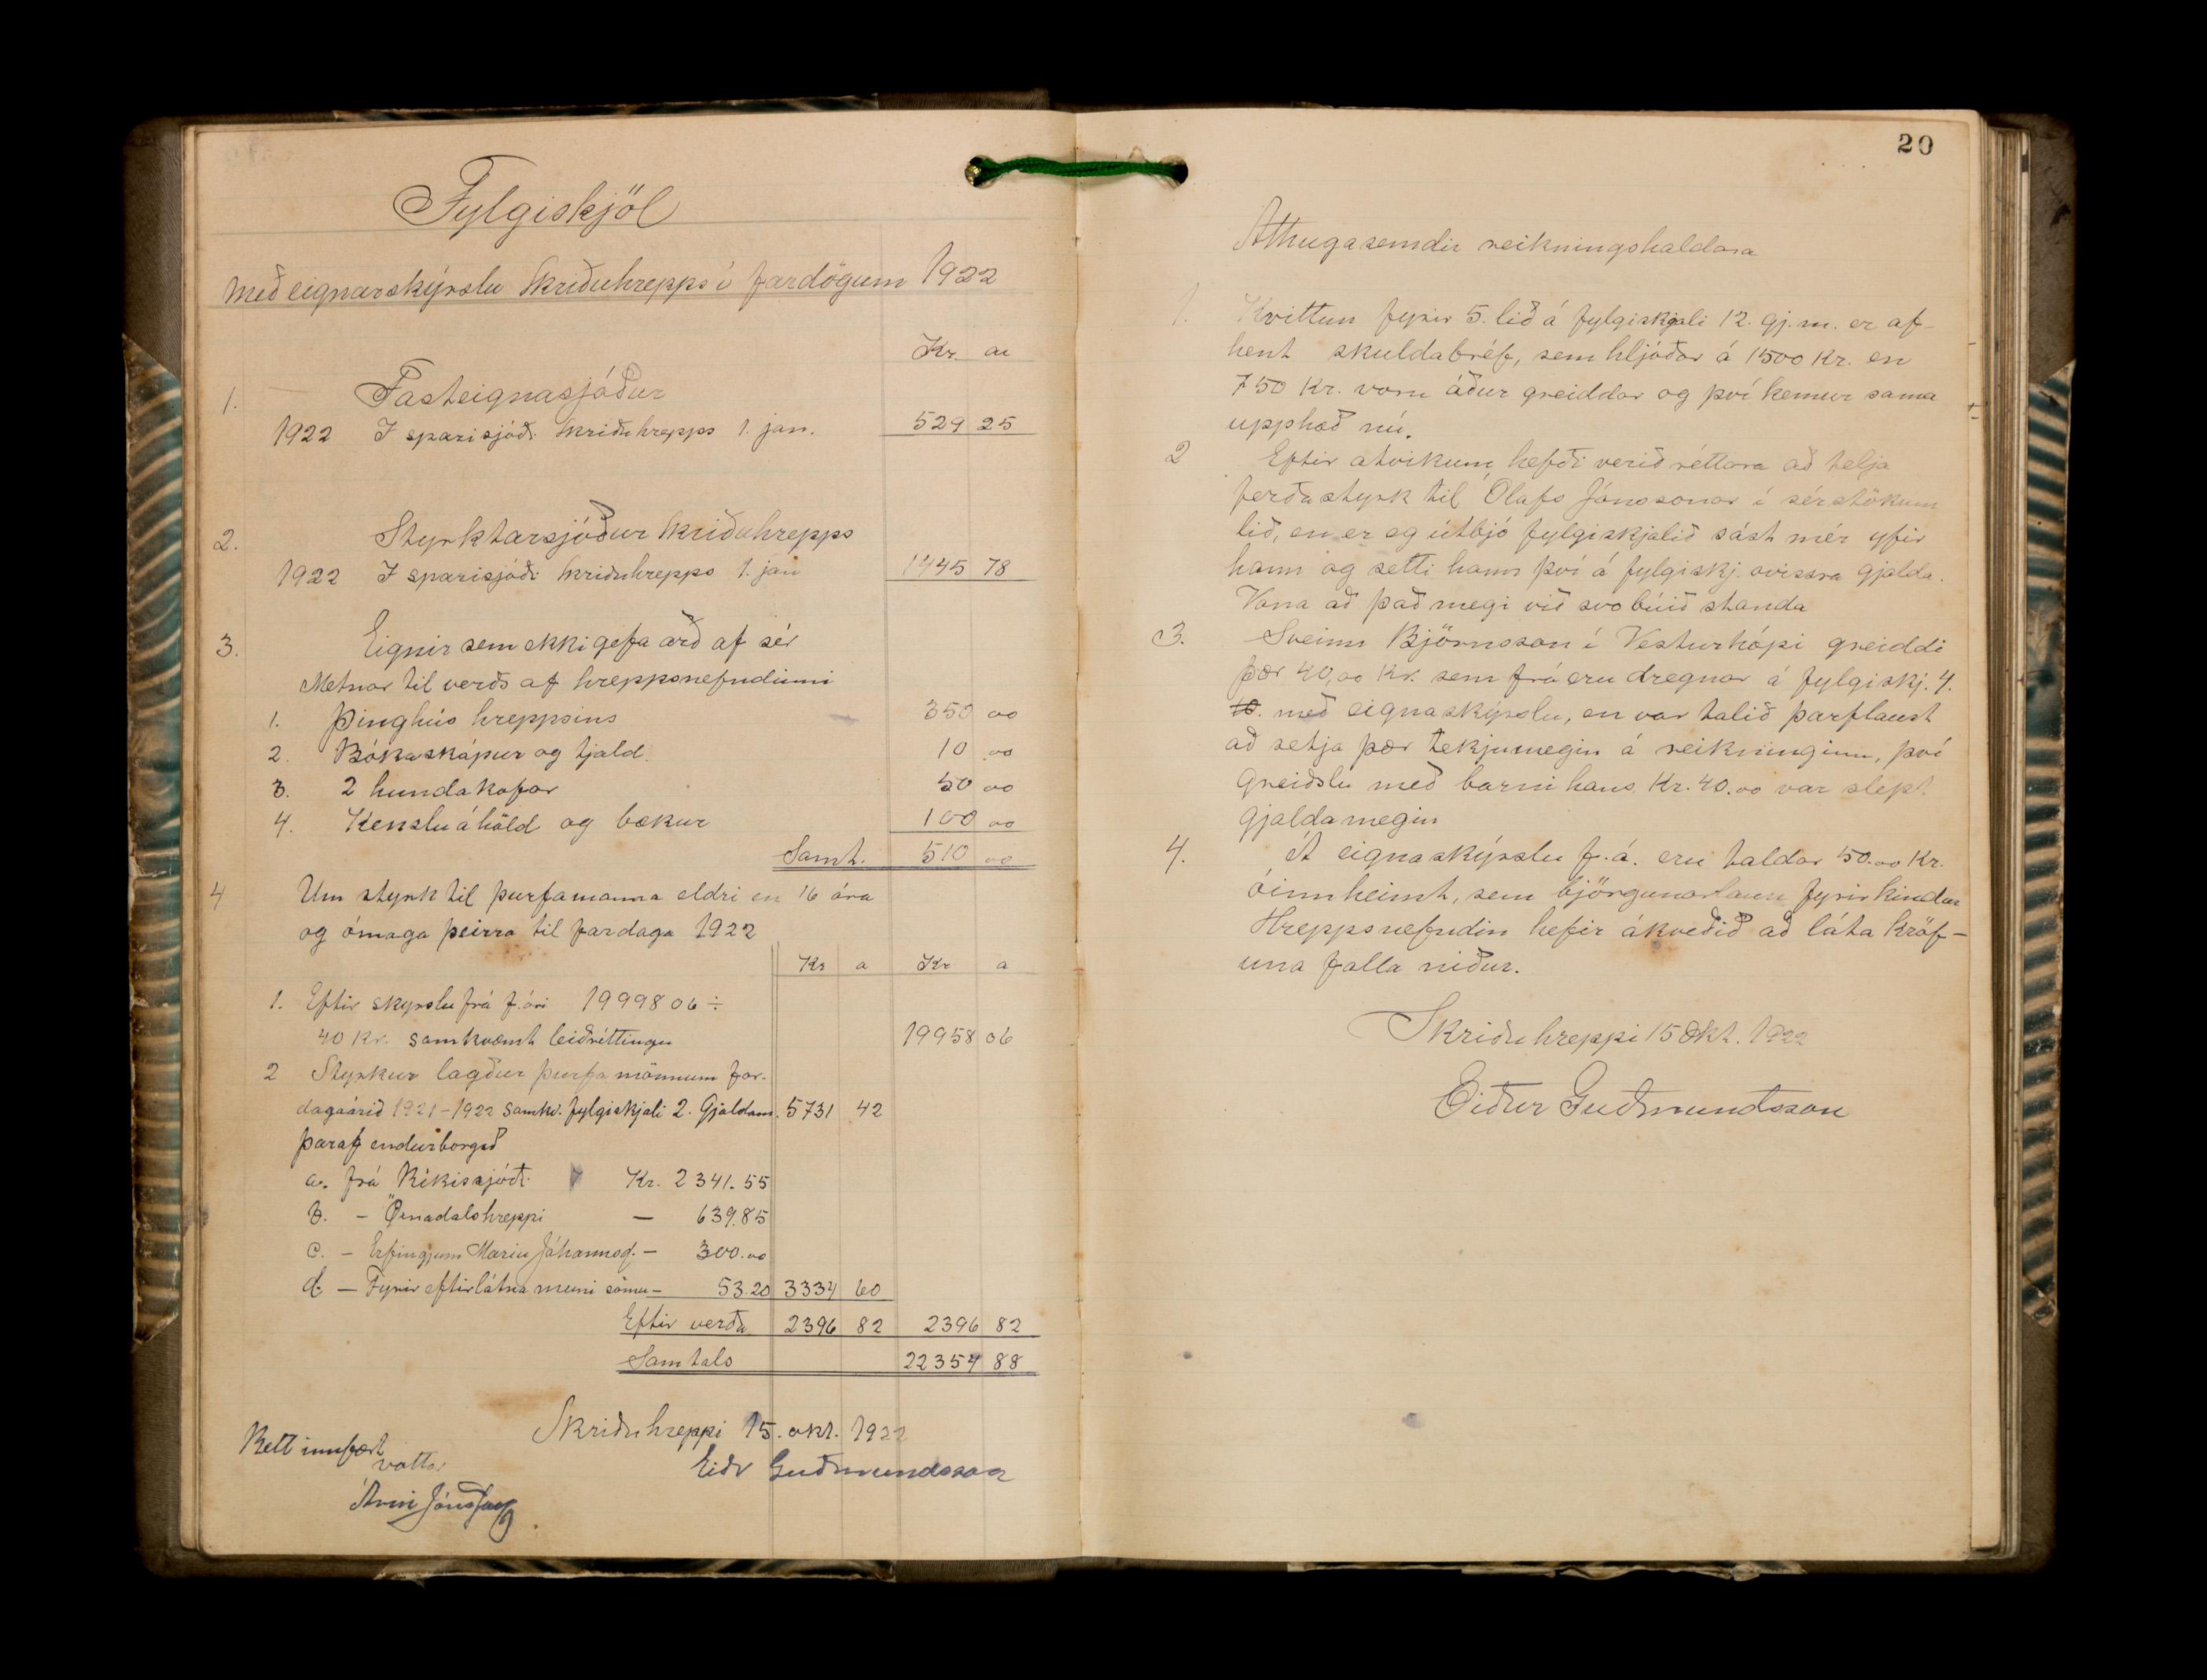 Fylgiskjöl
með eignarskýrslu Skriðuhrepps í fardögum 1922
Kr. au
1. Fasteignasjóður
1922 I sparisjóði Skriðuhrepps 1. jan. 529 25
2. Styrktarsjóður Skriðuhrepps
1922 I sparisjóði Skriðuhrepps 1. jan 1445 78
3. Eignir sem ekki gefa arð af sér
Metnar til verðs af hreppsnefndinni
1. Þinghús hreppsins 350 00
2. Bókaskápur og tjald. 10 00
3. 2 hundakofar 50 00
4. Kensluáhöld og bækur 100 00
Samt. 510 00
4 Um styrk til þurfamanna eldri en 16 ára
og ómaga þeirra til fardaga 1922
Kr a Kr a
1. Eftir skyrslu frá f. ári 19998 06 ÷
40 Kr. samkvæmt leiðréttingu 19958 06
2 Styrkur lagður þurfamönnum far-
dagaárið 1921-1922 samkv. fylgiskjali 2. Gjaldam. 5731 42
þaraf endurborgað
a. frá Ríkissjóði Kr. 2341.55
b. - Öxnadalshreppi — 639.85
c. - Erfingjum Maríu Jóhannsd. - 300.00
d. — Fyrir eftirlátna muni sömu - 53.20 3334 60
Eftir verða 2396 82 2396 82
Samtals 22354 88
Skriðuhreppi 15. okt. 1922
Eiðr Guðmundsson
Rétt innfært
vottar
Árni Jónsson
20
Athugasemdir reikningshaldara
1. Kvittun fyrir 5. lið á fylgiskjali 12. gj.m. er af-
hent skuldabréf, sem hljóðar á 1500 Kr. en
750 Kr. voru áður greiddar og því kemur sama
upphæð nú.
2 Eftir atvikum hefði verið réttara að telja
ferðastyrk til Ólafs Jónssonar í sérstökum
lið, en er eg útbjó fylgiskjalið sást mér yfir
hann og setti hann því á fylgiskj. óvissra gjalda.
Vona að það megi við svo búið standa
3. Sveinn Björnsson í Vesturhópi greiddi
þær 40,00 Kr. sem frá eru dregnar á fylgiskj. 4.
með eignaskýrslu, en var talið þarflaust
að setja þær tekjumegin á reikninginn, því
greiðslu með barni hans Kr. 40.00 var slept
gjaldamegin
4. Á eignaskýrslu f.á. eru taldar 50.00 Kr.
óinnheimt, sem björgunarlaun fyrir kindur
Hreppsnefndin hefir ákveðið að láta kröf-
una falla niður.
Skriðuhreppi 15 Okt. 1922
Eiður Guðmundsson